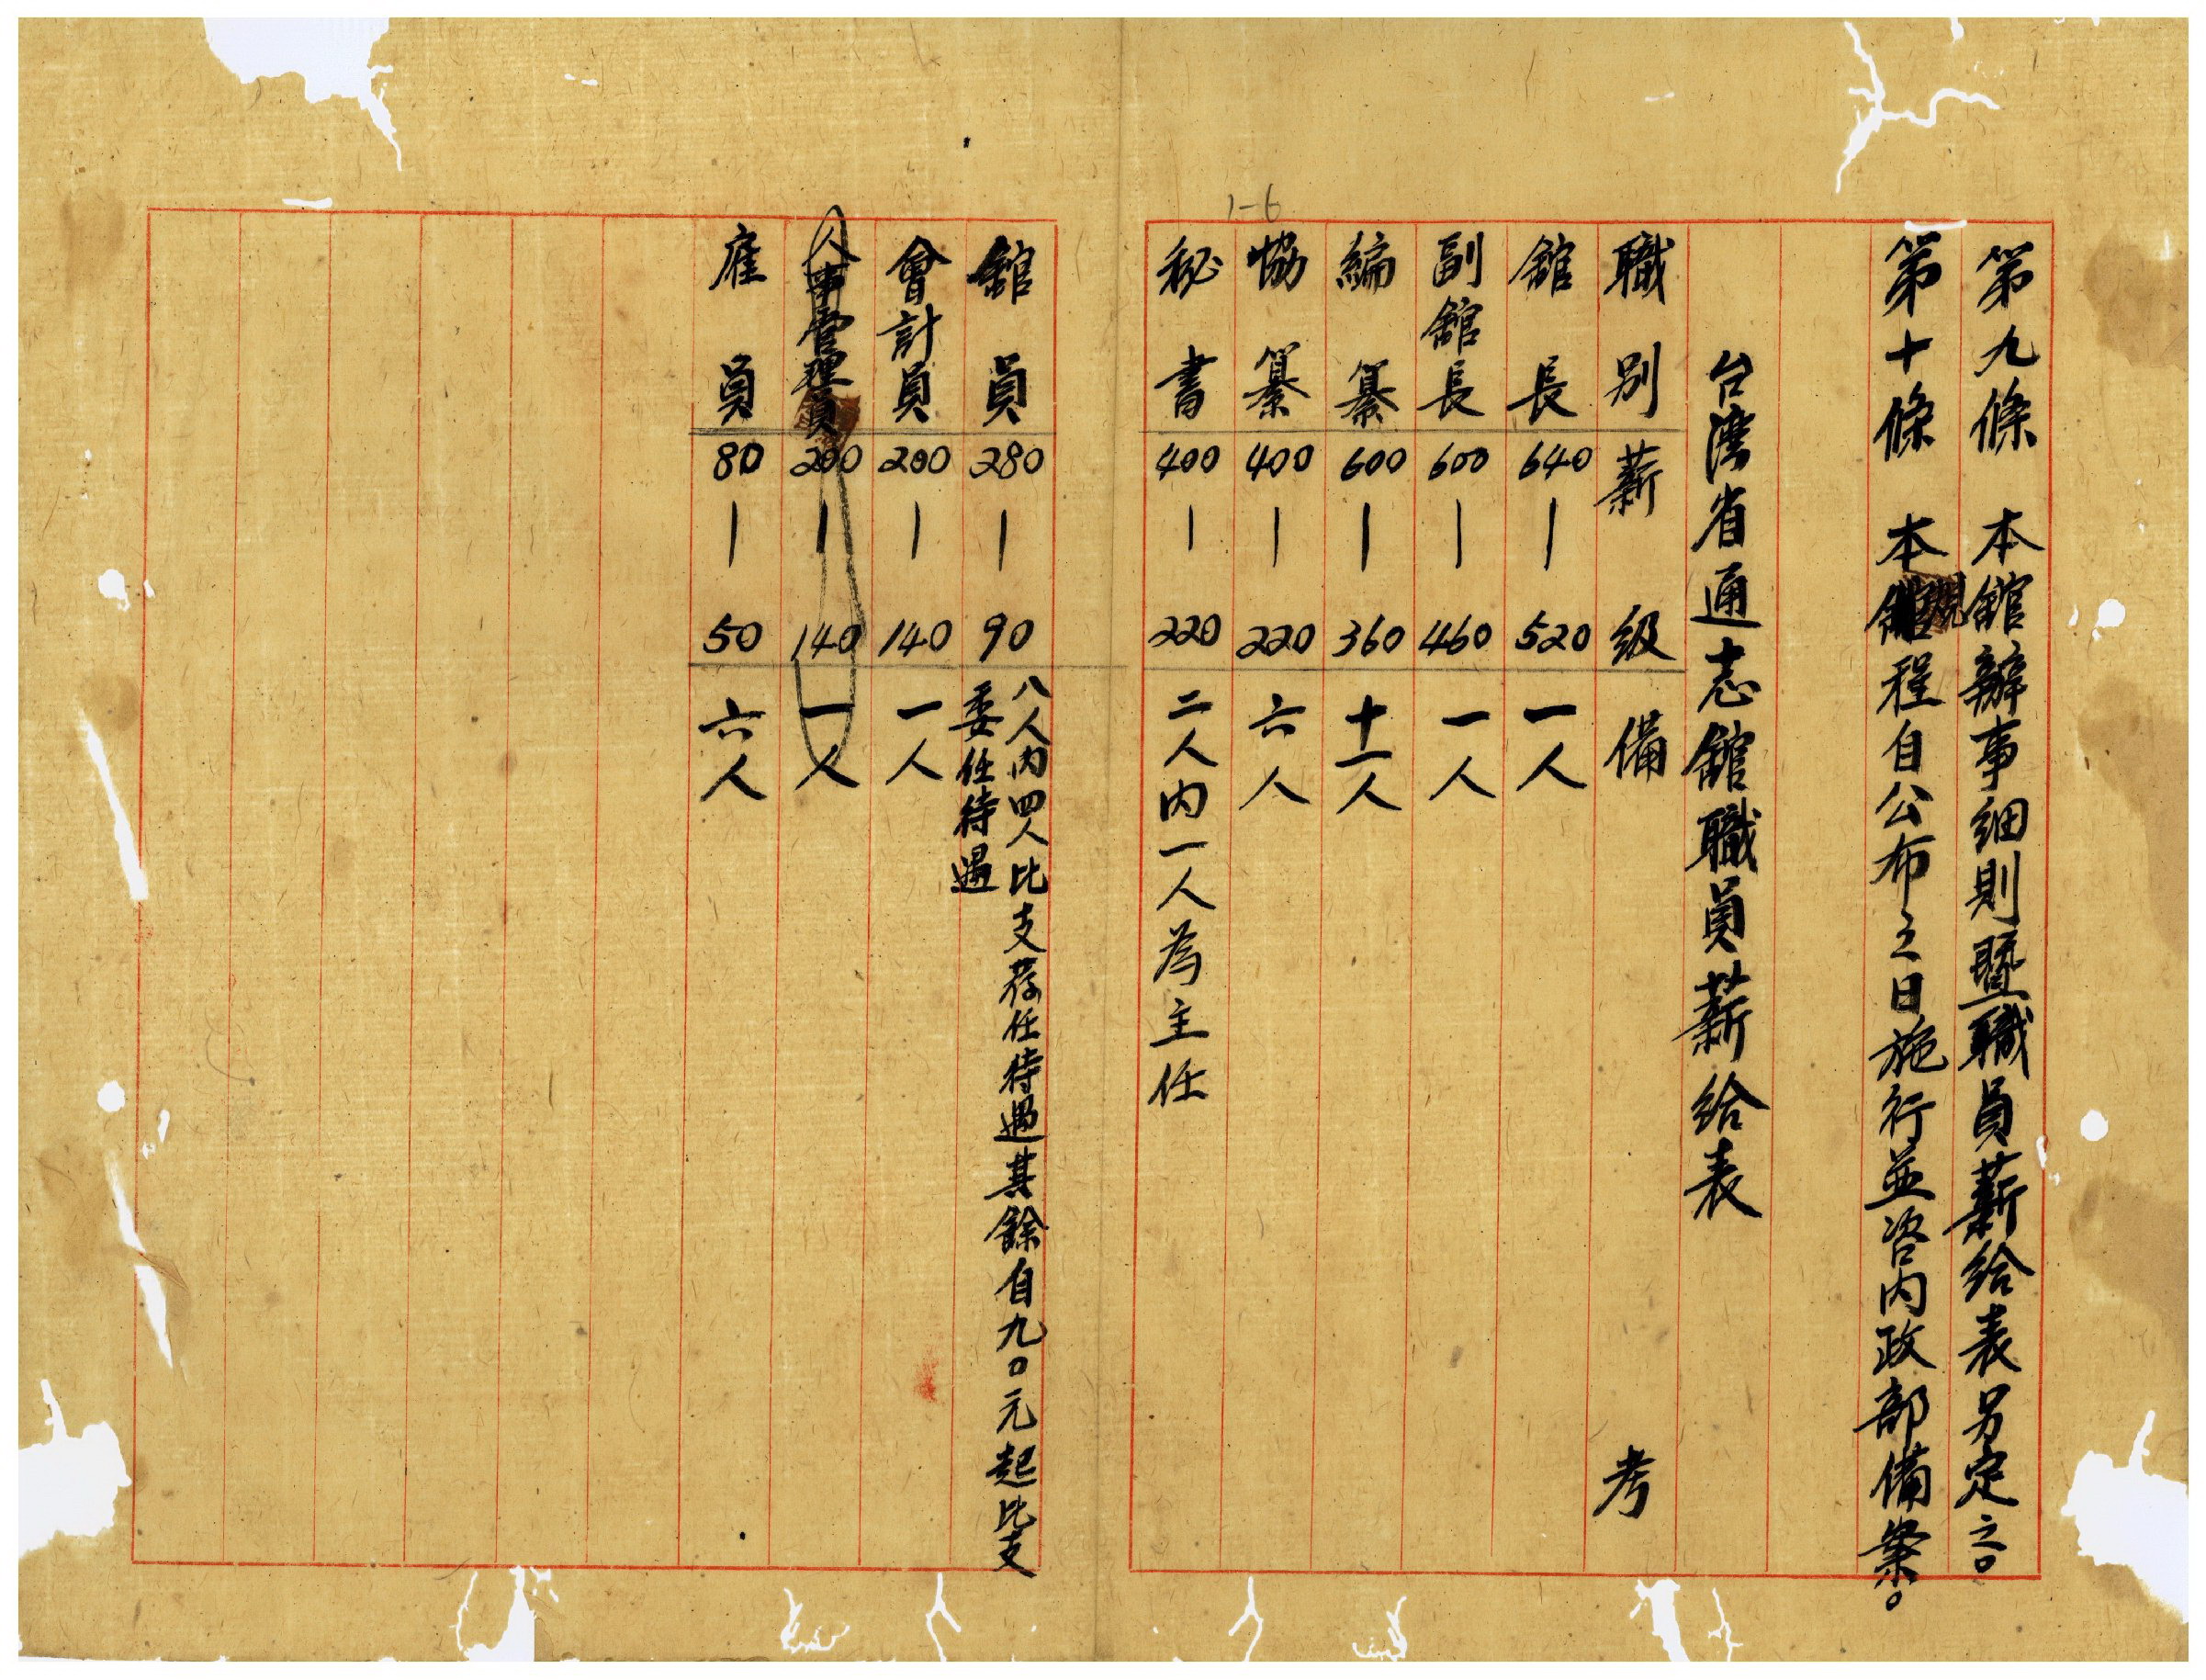 第九條　本館辦事細則暨職員薪給表另定之。
第十條　本規程自公布之日施行並咨內政部備案。
台灣省通志館職員薪給表
職別　薪級　備考
館長　640—520　一人
副館長　600—460　一人
編纂　600—360　十一人
協纂　400—220　六人
秘書　400—220　二人內一人為主任
1-6
館員　280—90　八人內四人比支荐任待遇其餘自九〇元起比支
委任待遇
會計員　200—140　一人
人事管理員　200—140　一人
雇員　80—50　六人